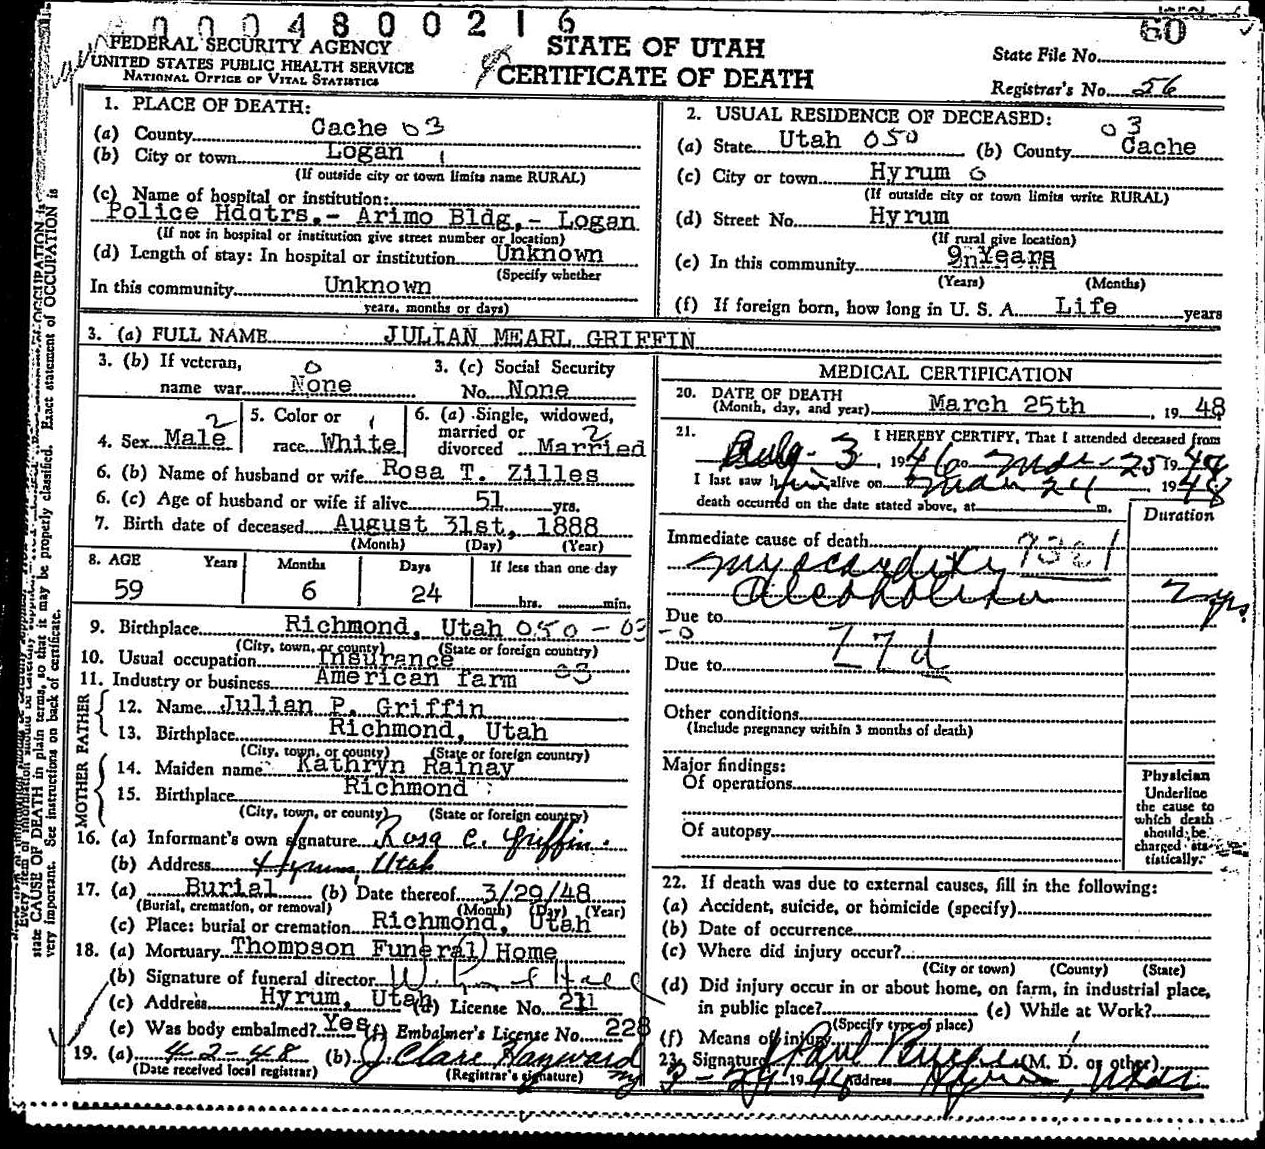 00004800216
60
FEDERAL SECURITY AGENCY
UNITED STATES PUBLIC HEALTH SERVICE
NATIONAL OFFICE OF VITAL STATISTICS
STATE OF UTAH
CERTIFICATE OF DEATH
State File No.
Registrar's No. 56
1. PLACE OF DEATH:
(a) County Cache 03
(b) City or town Logan 1
(If outside city or town limits name RURAL)
(c) Name of hospital or institution:
Police Hdqtrs.- Arimo Bldg.- Logan
(If not in hospital or institution give street number or location)
(d) Length of stay: In hospital or institution Unknown
(Specify whether
In this community Unknown
years, months or days)
2. USUAL RESIDENCE OF DECEASED:
(a) State Utah 050 (b) County Cache 03
(c) City or town Hyrum 0
(If outside city or town limits write RURAL)
(d) Street No. Hyrum
(If rural give location)
(e) In this community 9 Years
(Years) (Months)
(f) If foreign born, how long in U. S. A. Life years
3. (a) FULL NAME JULIAN MEARL GRIFFIN
3. (b) If veteran, 0
name war None
3. (c) Social Security
No. None
4. Sex Male 2
5. Color or 1
race White
6. (a) Single, widowed,
married or 2
divorced Married
6. (b) Name of husband or wife Rosa T. Zilles
6. (c) Age of husband or wife if alive 51 yrs.
7. Birth date of deceased August 31st, 1888
(Month) (Day) (Year)
8. AGE Years Months Days If less than one day
59 6 24 hrs. min.
9. Birthplace Richmond, Utah 050-03
-0
(City, town, or county) (State or foreign country)
10. Usual occupation Insurance
11. Industry or business American farm
FATHER
12. Name Julian P. Griffin
13. Birthplace Richmond, Utah
(City, town, or county) (State or foreign country)
MOTHER
14. Maiden name Kathryn Rainay
15. Birthplace Richmond
(City, town, or county) (State or foreign country)
16. (a) Informant's own signature Rosa C. Griffin.
(b) Address Hyrum, Utah
17. (a) Burial (b) Date thereof 3/29/48
(Burial, cremation, or removal) (Month) (Day) (Year)
(c) Place: burial or cremation Richmond, Utah
18. (a) Mortuary Thompson Funeral Home
(b) Signature of funeral director
(c) Address Hyrum, Utah (d) License No. 211
(e) Was body embalmed? Yes (f) Embalmer's License No. 228
19. (a) 4-2-48 (b) J Clare Hayward
(Date received local registrar) (Registrar's signature)
MEDICAL CERTIFICATION
20. DATE OF DEATH
(Month, day, and year) March 25th, 19 48
21. I HEREBY CERTIFY, That I attended deceased from
3, 1946 to Mar 25 1948
I last saw him alive on Mar 24 1948
death occurred on the date stated above, at m.
Duration
Immediate cause of death
Myocarditis
Alcoholism 2 yrs.
Due to
77d
Due to
Other conditions
(Include pregnancy within 3 months of death)
Major findings:
Of operations
Of autopsy
Physician
Underline
the cause to
which death
should be
charged sta-
tistically.
22. If death was due to external causes, fill in the following:
(a) Accident, suicide, or homicide (specify)
(b) Date of occurrence
(c) Where did injury occur?
(City or town) (County) (State)
(d) Did injury occur in or about home, on farm, in industrial place,
in public place? (e) While at Work?
(Specify type of place)
(f) Means of injury
23. Signature (M. D. or other)
1948 Address Hyrum, Utah
state CAUSE OF DEATH in plain terms, so that it may be properly classified. Exact statement of OCCUPATION is
very important. See instructions on back of certificate.